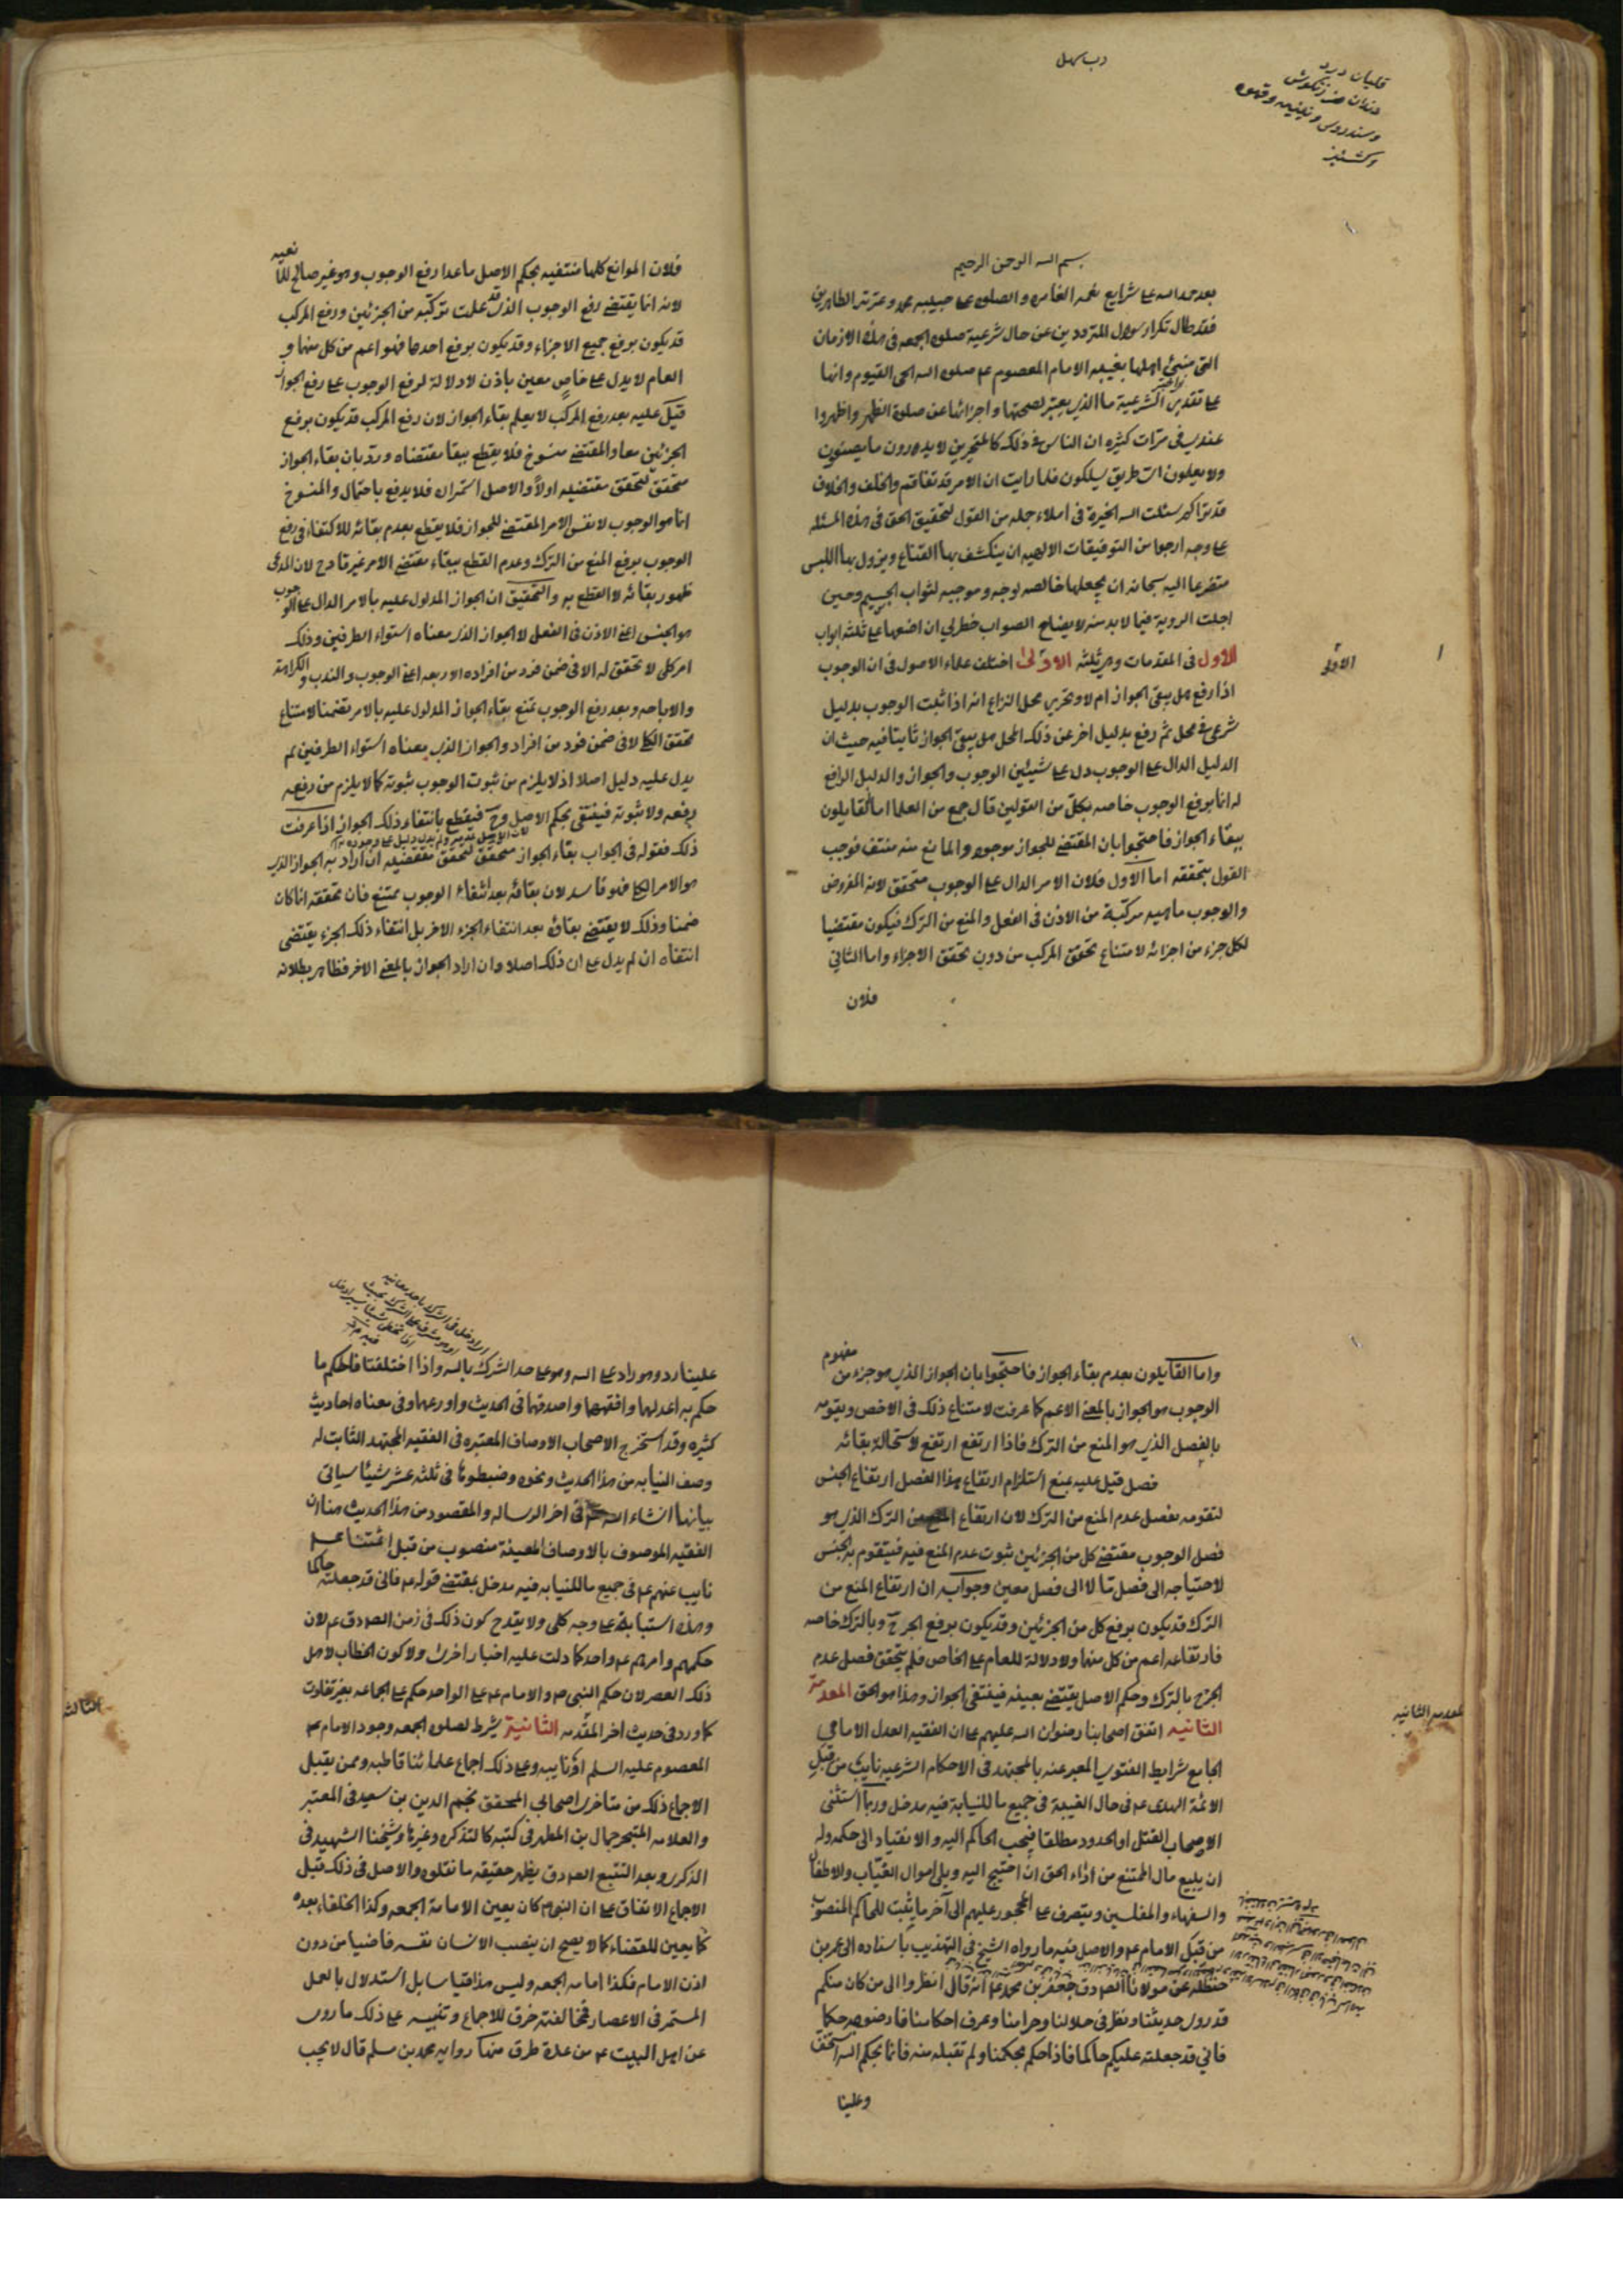 بسم الله الرحمن الرحيم
بعد حمد الله على شرايع نعمه الغامره والصلوه على حبيبه محمد وعترته الطاهرين
فقد طال تكرار سؤال المترددين عن حال شرعية صلوه الجمعه فى هذه الازمان
التى منيئ اهلها بغيبه الامام المعصوم عم صلوه الله الحى القيوم وانها
على تقدير الشرعية ما الذى يعتبر لصحتها واجزائها عن صلوة الظهر واظهروا
عندى فى مرات كثيره ان الناس فى ذلك كالمتحيرين لا يدرون ما يصنعون
ولا يعلمون اى طريق يسلكون فلما رايت ان الامر قد تفاقم والخلف والخلاف
قد تراكم سئلت الله الخيرة فى املاء جمله من القول لتحقيق الحق فى هذه المسئله
على وجه ارجوا من التوفيقات الالهيه ان ينكشف بها القناع ويزول بها اللبس
متضرعا اليه سبحانه ان يجعلها خالصه لوجهه وموجبه لثواب الجسيم وحين
اجلت الروية فيما لا بد منه لايضاح الصواب خطر لى ان اضعها على ثلثه ابواب
الاول فى المقدمات وهى ثلثه الاولى اختلف علماء الاصول فى ان الوجوب
اذا رفع هل يبقى الجواز ام لا وتحرير محل النزاع انه اذا ثبت الوجوب بدليل
شرعى فى محل ثم رفع بدليل اخر عن ذلك المحل هل يبقى الجواز ثابتا فيه حيث ان
الدليل الدال على الوجوب دل على شيئين الوجوب والجواز والدليل الرافع
له انما يرفع الوجوب خاصه بكل من القولين قال جمع من العلما اما القايلون
ببقاء الجواز فاحتجوا بان المقتضى للجواز موجود والمانع منه منتف فوجب
القول بتحققه اما الاول فلان الامر الدال على الوجوب متحقق لانه المفروض
والوجوب ماهيه مركبة من الاذن فى الفعل والمنع من الترك فيكون مقتضيا
لكل جزء من اجزائه لامتناع تحقق المركب من دون تحقق الاجزاء واما الثانى
فلان
الاولى
فلان الموانع كلها منتفيه بحكم الاصل ما عدا رفع الوجوب وهو غير صالح للمانعيه
لانه انما يقتضى رفع الوجوب الذى قد علمت تركبه من الجزئين ورفع المركب
قد يكون برفع جميع الاجزاء وقد يكون برفع احدها فهو اعم من كل منها و
العام لا يدل على خاص معين باذن لا دلالة لرفع الوجوب على رفع الجواز
قيل عليه بعد رفع المركب لا يعلم بقاء الجواز لان رفع المركب قد يكون برفع
الجزئين معا والمقتضى منسوخ فلا يقطع ببقا مقتضاه ورد بان بقاء الجواز
متحقق لتحقق مقتضيه اولا والاصل استمراره فلا يدفع باحتمال والمنسوخ
انما هو الوجوب لا نفس الامر المقتضى للجواز فلا يقطع بعدم بقائه للاكتفاء فى رفع
الوجوب برفع المنع من الترك وعدم القطع ببقاء مقتضى الامر غير قادح لان المدعى
ظهور بقائه لا القطع به والتحقيق ان الجواز المدلول عليه بالامر الدال على الوجوب
هو الجنس اعنى الاذن فى الفعل لا الجواز الذى معناه استواء الطرفين وذلك
امر كلى لا تحقق له الا فى ضمن فرد من افراده الاربعه اعنى الوجوب والندب والكراهة
والاباحه وبعد رفع الوجوب يمتنع بقاء الجواز المدلول عليه بالامر تضمنا لامتناع
تحقق الكلى لا فى ضمن فرد من افراده والجواز الذى معناه استواء الطرفين لم
يدل عليه دليل اصلا اذ لا يلزم من ثبوت الوجوب ثبوته كما لا يلزم من رفعه
رفعه ولا ثبوته فينتفى بحكم الاصل وح فيقطع بانتفاء ذلك الجواز اذا عرفت
ذلك فقوله فى الجواب بقاء الجواز متحقق لتحقق مقتضيه ان اراد به الجواز الذى
هو الامر الكلى فهو فاسد لان بقائه بعد انتفاء الوجوب يمتنع فان تحققه انما كان
ضمنا وذلك لا يقتضى بقائه بعد انتفاء الجزء الاخر بل انتفاء ذلك الجزء يقتضى
انتفاه ان لم يدل على ان ذلك اصلا وان اراد الجواز بالمعنى الاخر فظاهر بطلانه
واما القايلون بعدم بقاء الجواز فاحتجوا بان الجواز الذى هو جزء من مفهوم
الوجوب هو الجواز بالمعنى الاعم كما عرفت لامتناع ذلك فى الاخص وتقومه
بالفصل الذى هو المنع من الترك فاذا ارتفع ارتفع لاستحالة بقائه
فصل قيل عليه بمنع استلزام ارتفاع هذا الفصل ارتفاع الجنس
لتقومه بفصل عدم المنع من الترك لان ارتفاع المنع من الترك الذى هو
فصل الوجوب مقتضى كل من الجزئين ثبوت عدم المنع فيه فيتقوم به الجنس
لاحتياجه الى فصل ما لا الى فصل معين وجوابه ان ارتفاع المنع من
الترك قد يكون برفع كل من الجزئين وقد يكون برفع الحرج وبالترك خاصه
فارتفاعه اعم من كل منها ولا دلالة للعام على الخاص فلم يتحقق فصل عدم
الحرج بالترك وحكم الاصل يقتضى بعينه فينتفى الجواز وهذا هو الحق المقدمة
الثانيه اتفق اصحابنا رضوان الله عليهم على ان الفقيه العدل الامامى
الجامع شرايط الفتوى المعبر عنه بالمجتهد فى الاحكام الشرعيه نايب من قبل
الائمة الهدى عم فى حال الغيبة فى جميع ما للنيابة فيه مدخل وربما استثنى
الاصحاب القتل او الحدود مطلقا فيجب التحاكم اليه والانقياد الى حكمه وله
ان يبيع مال الممتنع من اداء الحق ان احتيج اليه ويلى اموال الغياب والاطفال
والسفهاء والمفلسين ويتصرف على المحجور عليهم الى آخر ما يثبت للحاكم المنصوب
من قبل الامام عم والاصل فيه ما رواه الشيخ فى التهذيب باسناده الى عمر بن
حنظله عن مولانا الصادق جعفر بن محمد عم انه قال انظروا الى من كان منكم
قد روى حديثنا ونظر فى حلالنا وحرامنا وعرف احكامنا فارضوه حكما
فانى قد جعلته عليكم حاكما فاذا حكم بحكمنا ولم تقبله منه فانما بحكم الله استخف
وعلينا
المقدمه الثانيه
علينا رد وهو راد على الله وهو على حد الشرك بالله واذا اختلفتا فالحكم ما
حكم به اعدلهما وافقههما واصدقهما فى الحديث واورعهما وفى معناه احاديث
كثيره وقد استخرج الاصحاب الاوصاف المعتبره فى الفقيه المجتهد الثابت له
وصف النيابه من هذا الحديث ونحوه وضبطوها فى ثلثه عشر شيئا سياتى
بيانها انشاء الله فى اخر الرساله والمقصود من هذا الحديث هنا ان
الفقيه الموصوف بالاوصاف المعينة منصوب من قبل ائمتنا عم
نايب عنهم عم فى جميع ما للنيابه فيه مدخل بمقتضى قوله عم فانى قد جعلته حاكما
وهذه استنابة على وجه كلى ولا يقدح كون ذلك فى زمن الصادق عم لان
حكمهم وامرهم عم واحد كما دلت عليه اخبار اخرى ولا كون الخطاب لاهل
ذلك العصر لان حكم النبى ص والامام عم على الواحد حكم على الجماعه بغير تفاوت
كما ورد فى حديث اخر المقدمه الثانية يشرط لصلوه الجمعه وجود الامام عم
المعصوم عليه السلم او نايبه وعلى ذلك اجماع علمائنا قاطبه وممن نقل
الاجماع ذلك من متاخرى اصحابى المحقق نجم الدين بن سعيد فى المعتبر
والعلامه المتبحر جمال بن المطهر فى كتبه كالتذكره وغيرها وشيخنا الشهيد فى
الذكرى وبعد التتبع الصادق يظهر حقيقه ما نقلوه والاصل فى ذلك قبل
الاجماع الاتفاق على ان النبى ص كان يعين لامامة الجمعه وكذا الخلفاء بعده
كما يعين للقضاء كما لا يصح ان ينصب الانسان نفسه قاضيا من دون
اذن الامام فكذا امامه الجمعه وليس هذا قياسا بل استدلال بالعمل
المستمر فى الاعصار فمخالفته خرق للاجماع وتنبيه على ذلك ما روى
عن اهل البيت عم من عدة طرق منها رواية محمد بن مسلم قال لا يجب
الثالثه